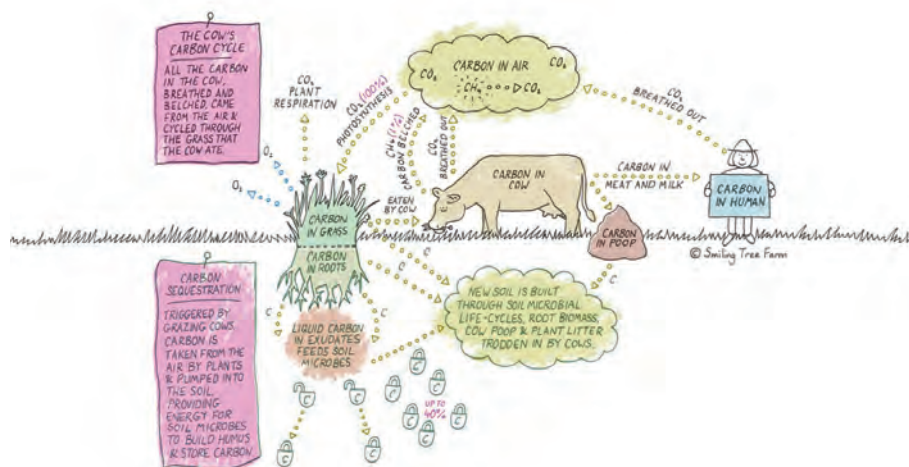 THE COW'S
CARBON CYCLE
ALL THE CARBON
IN THE COW,
BREATHED AND
BELCHED, CAME
FROM THE AIR &
CYCLED THROUGH
THE GRASS THAT
THE COW ATE.
O₂
O₂
CO₂
PLANT
RESPIRATION
CO₂ (100%)
PHOTOSYNTHESIS
CH₄ (1%)
CARBON BELCHED
CO₂
BREATHED OUT
CARBON IN AIR
CO₂
CO₂
CH₄
CO₂
CO₂
BREATHED OUT
EATEN
BY COW
CARBON IN
COW
CARBON IN
MEAT AND MILK
CARBON
IN HUMAN
CARBON
IN GRASS
CARBON
IN ROOTS
CARBON
IN POOP
© Smiling Tree Farm
CARBON
SEQUESTRATION
TRIGGERED BY
GRAZING COWS.
CARBON IS
TAKEN FROM THE
AIR BY PLANTS
& PUMPED INTO
THE SOIL,
PROVIDING
ENERGY FOR
SOIL MICROBES
TO BUILD HUMUS
& STORE CARBON.
C
C
C
C
C
C
LIQUID CARBON
IN EXUDATES
FEEDS SOIL
MICROBES
NEW SOIL IS BUILT
THROUGH SOIL MICROBIAL
LIFE-CYCLES, ROOT BIOMASS,
COW POOP & PLANT LITTER
TRODDEN IN BY COWS.
C
C
C
C
C
C
UP TO
40%
C
C
C
C
C